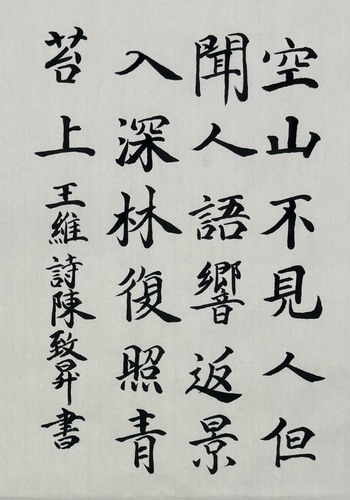 空山不見人但
聞人語響返景
入深林復照青
苔上王維詩陳致昇書